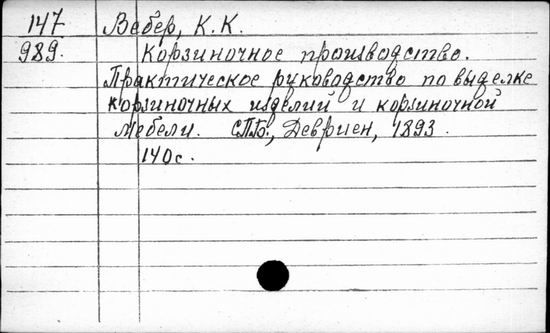 147 Вебер, К. К.
989. Корзиночное производство.
Практическое руководство по выделке
корзиночных изделий и корзиночной
мебели. СПБ., Девриен, 1893.
140с.